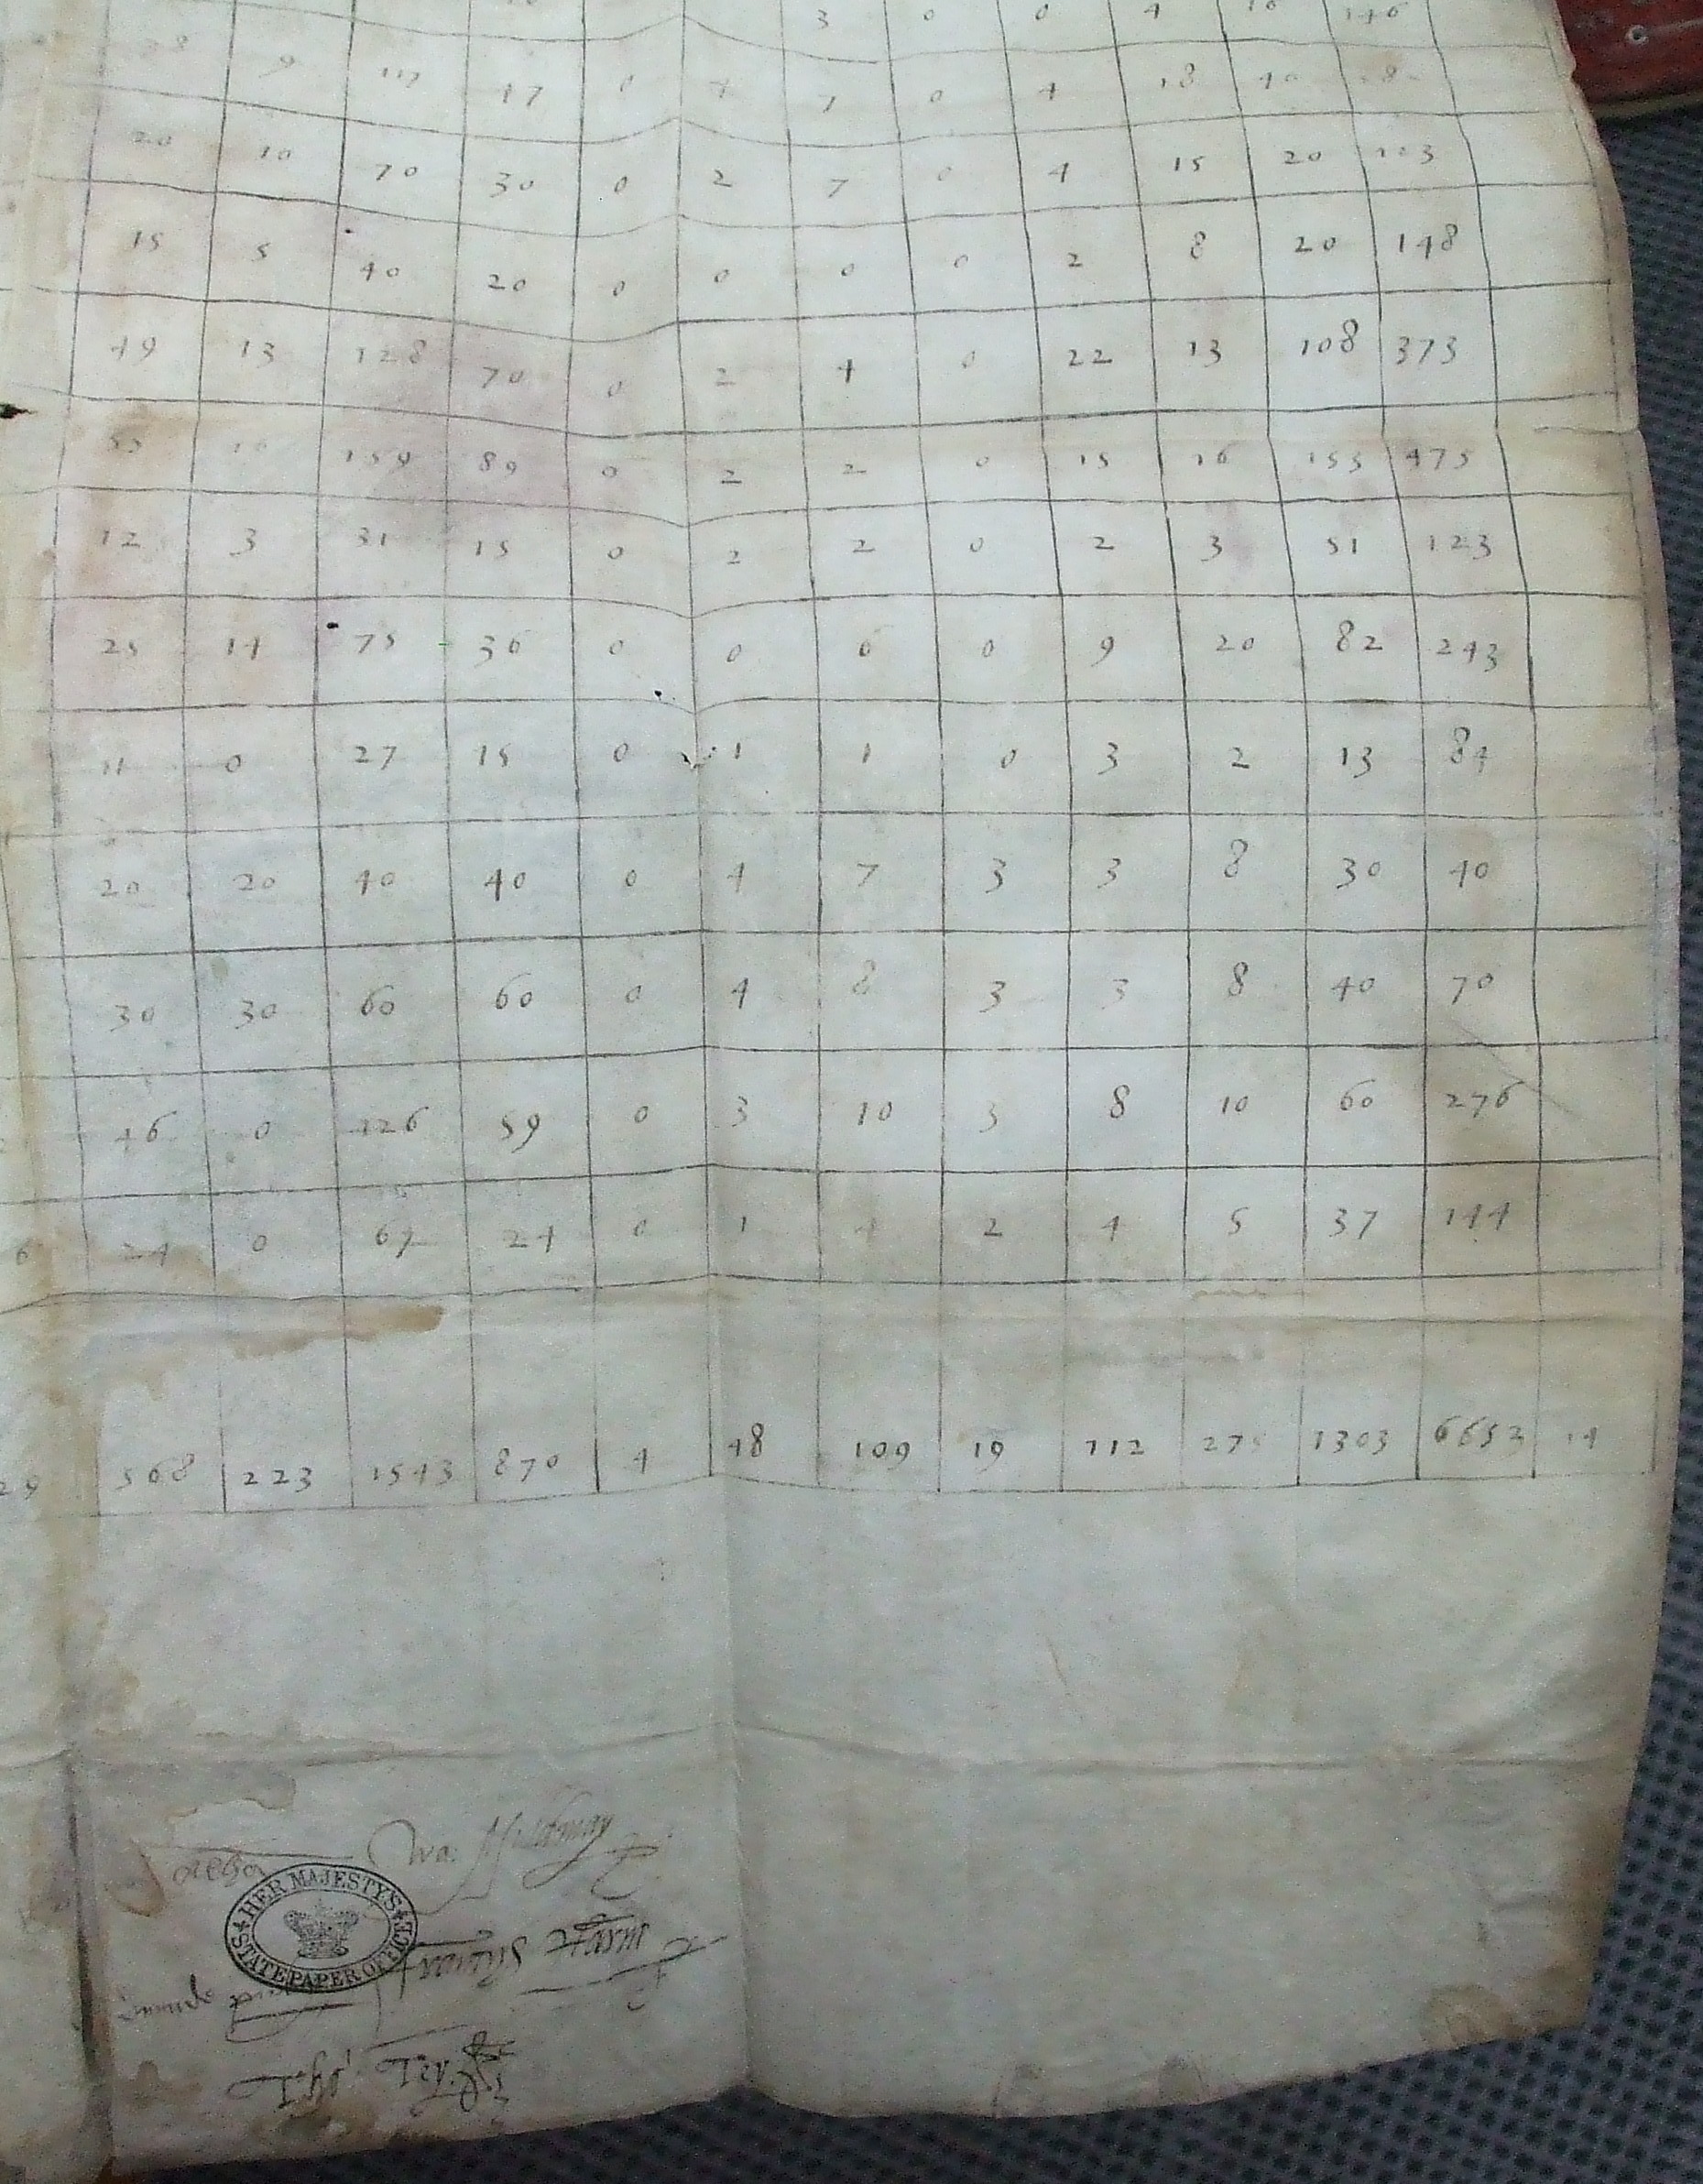 3 0 0 4 16 146
9 117 47 0 4 7 0 4 18 40
20 10 70 30 0 2 7 0 4 15 20 123
15 5 40 20 0 0 0 0 2 8 20 148
49 13 128 70 0 2 4 0 22 13 108 373
55 159 89 0 2 2 0 15 16 155 475
12 3 31 15 0 2 2 0 2 3 51 123
25 14 75 36 0 0 6 0 9 20 82 243
11 0 27 15 0 1 1 0 3 2 13 84
20 20 40 40 0 4 7 3 3 8 30 40
30 30 60 60 0 4 8 3 3 8 40 70
46 0 126 59 0 3 10 3 8 10 60 276
6 24 0 67 24 0 1 4 2 4 5 37 144
29 568 223 1543 870 4 48 109 19 112 275 1303 6652 14
Wa: Mildmay
HER MAJESTYS STATE PAPER OFFICE
frauncys Harvy
Tho: Tey